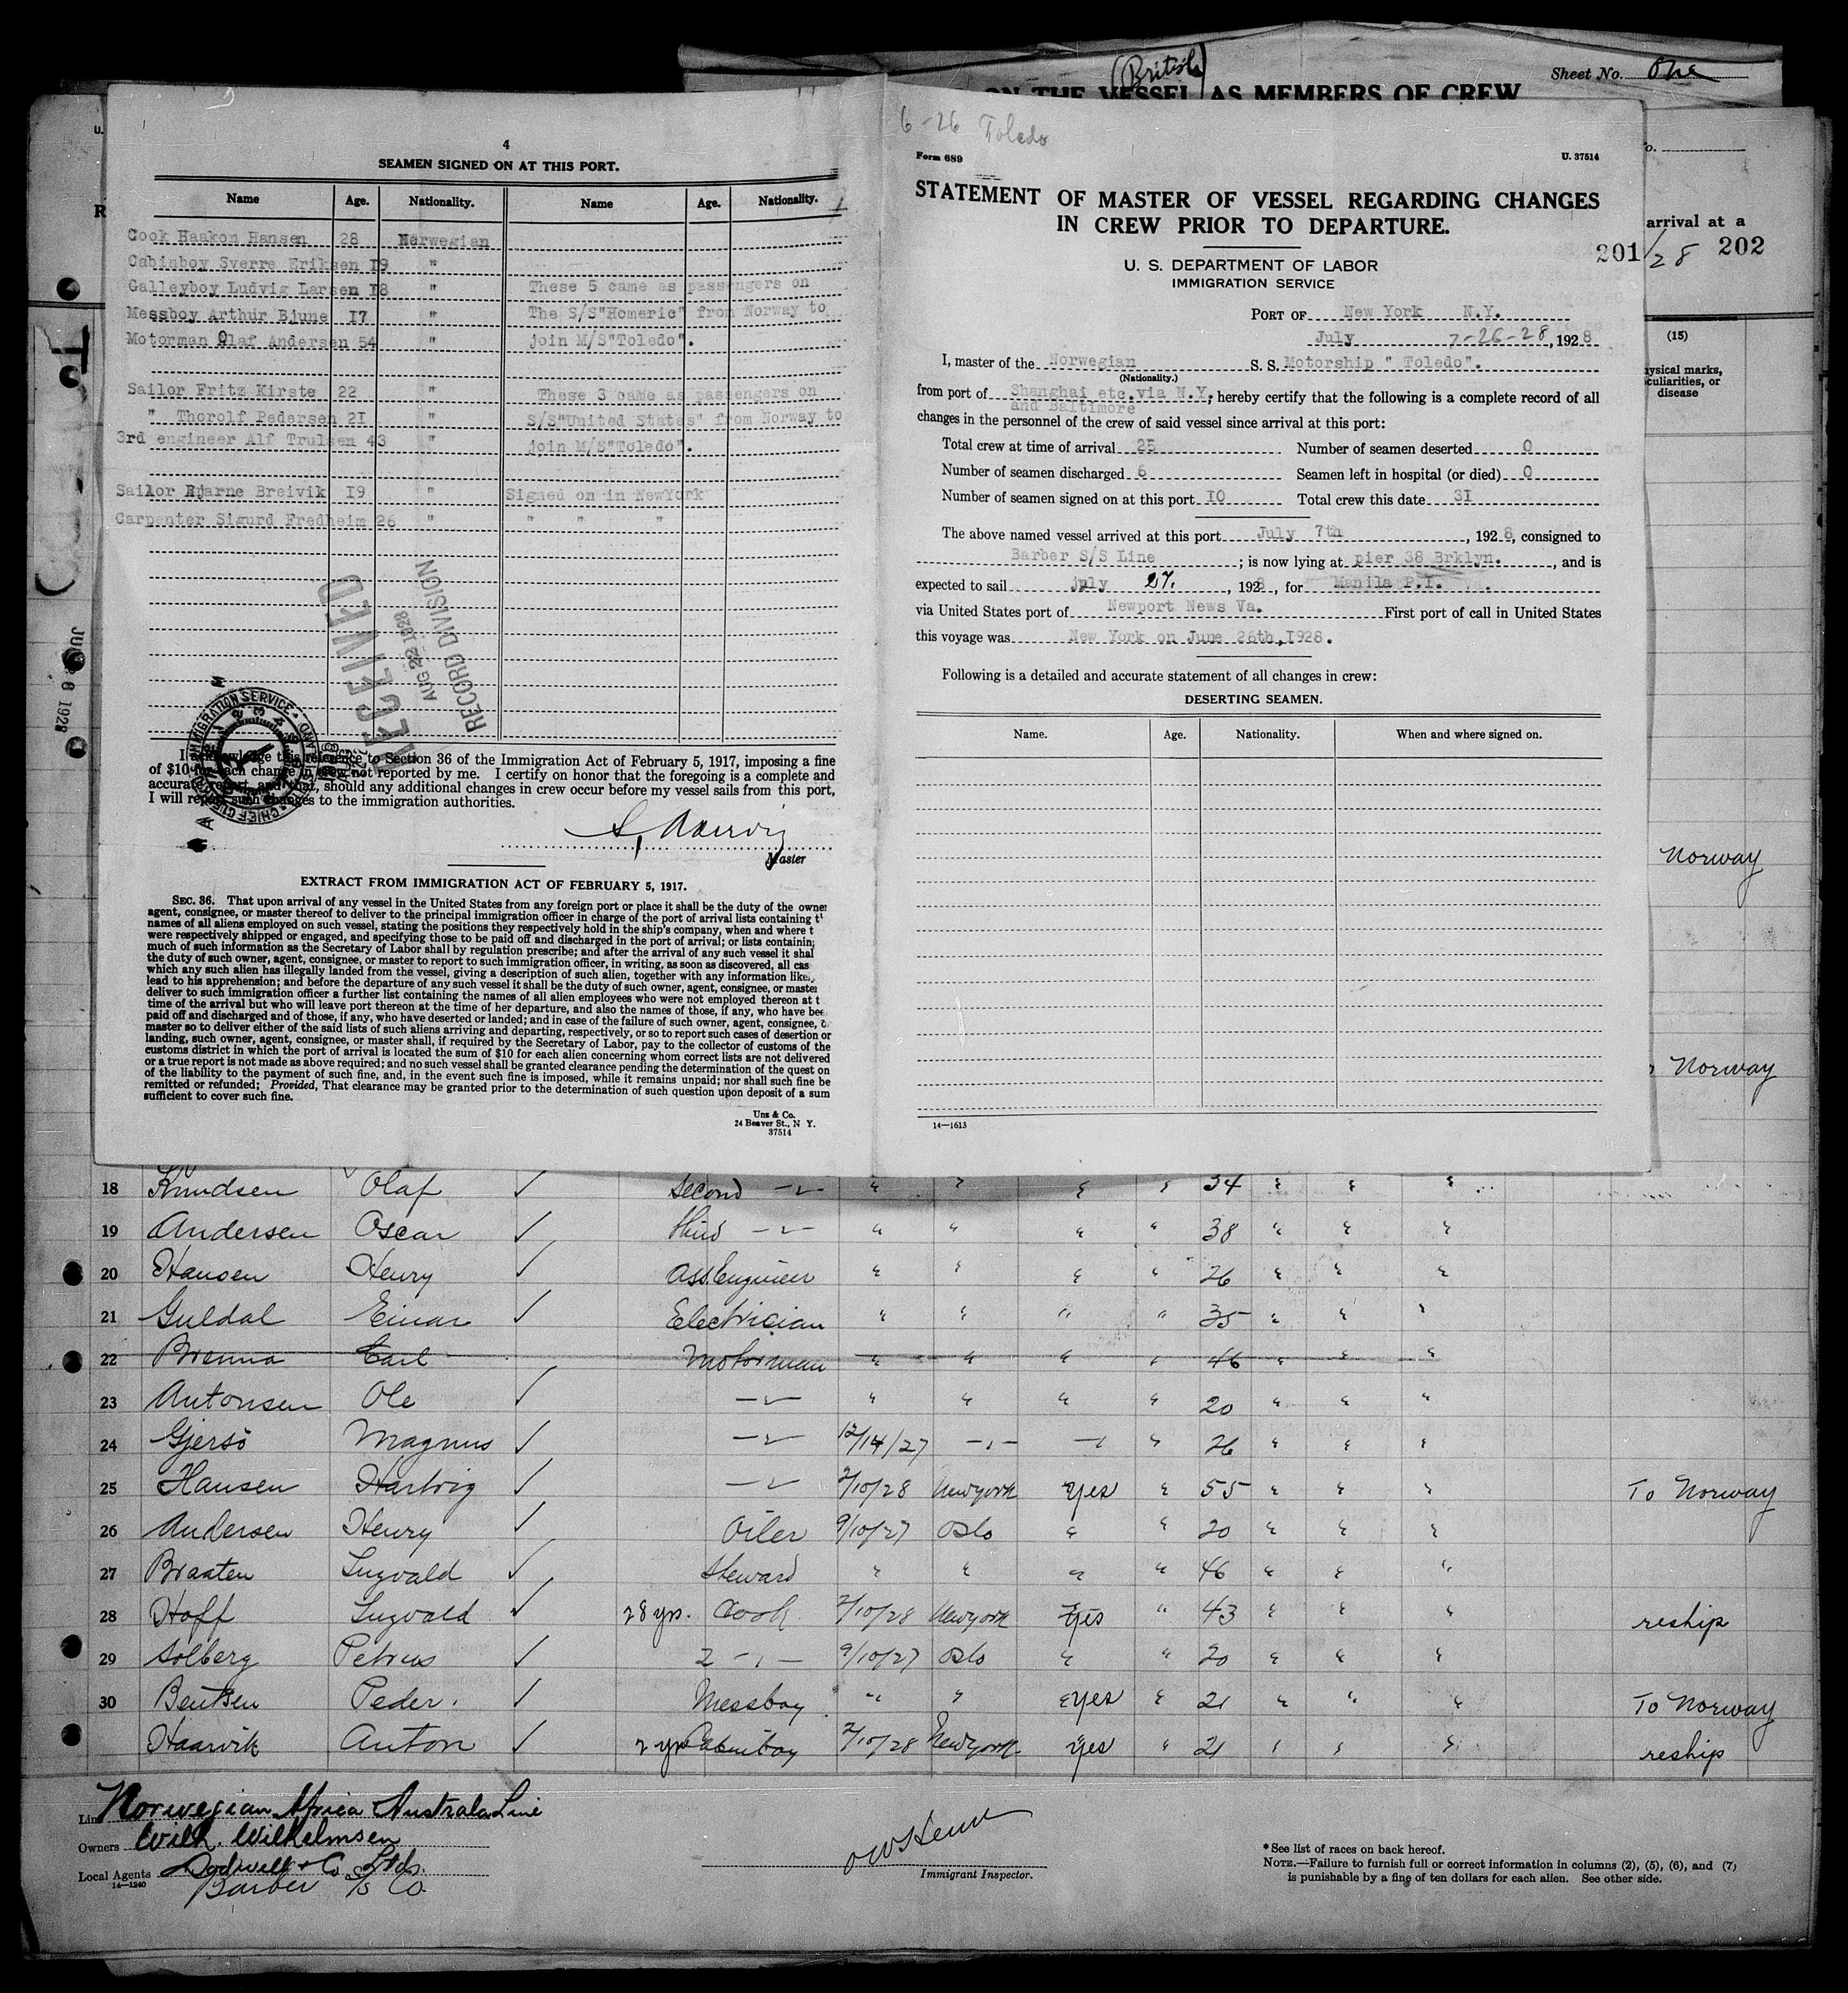 (British)
Sheet No. One
ON THE VESSEL AS MEMBERS OF CREW
arrival at a
201/28 202
(15)
physical marks,
peculiarities, or
disease
Norway
Norway
JUL 6 1928
4
SEAMEN SIGNED ON AT THIS PORT.
Name Age. Nationality. Name Age. Nationality.
Cook Haakon Hansen 28 Norwegian
Cabinboy Sverre Eriksen 19 "
Galleyboy Ludvig Larsen 18 " These 5 came as passengers on
Messboy Arthur Bjune 17 " The S/S"Homeric" from Norway to
Motorman Olaf Andersen 54 " join M/S"Toledo".
Sailor Fritz Kirste 22 " These 3 came as passengers on
" Thorolf Pedersen 21 " S/S"United States" from Norway to
3rd engineer Alf Trulsen 43 " join M/S"Toledo".
Sailor Bjarne Breivik 19 " Signed on in NewYork
Carpenter Sigurd Fredheim 26 " " " "
RECEIVED
AUG 22 1928
RECORD DIVISION
I acknowledge this reference to Section 36 of the Immigration Act of February 5, 1917, imposing a fine
of $10 for each change in crew not reported by me. I certify on honor that the foregoing is a complete and
accurate report, and that, should any additional changes in crew occur before my vessel sails from this port,
I will report such changes to the immigration authorities.
Master
EXTRACT FROM IMMIGRATION ACT OF FEBRUARY 5, 1917.
SEC. 36. That upon arrival of any vessel in the United States from any foreign port or place it shall be the duty of the owner
agent, consignee, or master thereof to deliver to the principal immigration officer in charge of the port of arrival lists containing t
names of all aliens employed on such vessel, stating the positions they respectively hold in the ship's company, when and where t
were respectively shipped or engaged, and specifying those to be paid off and discharged in the port of arrival; or lists containin
much of such information as the Secretary of Labor shall by regulation prescribe; and after the arrival of any such vessel it shal
the duty of such owner, agent, consignee, or master to report to such immigration officer, in writing, as soon as discovered, all cas
which any such alien has illegally landed from the vessel, giving a description of such alien, together with any information like
lead to his apprehension; and before the departure of any such vessel it shall be the duty of such owner, agent, consignee, or master
deliver to such immigration officer a further list containing the names of all alien employees who were not employed thereon at t
time of the arrival but who will leave port thereon at the time of her departure, and also the names of those, if any, who have bee
paid off and discharged and of those, if any, who have deserted or landed; and in case of the failure of such owner, agent, consignee, o
master so to deliver either of the said lists of such aliens arriving and departing, respectively, or so to report such cases of desertion or
landing, such owner, agent, consignee, or master shall, if required by the Secretary of Labor, pay to the collector of customs of the
customs district in which the port of arrival is located the sum of $10 for each alien concerning whom correct lists are not delivered
or a true report is not made as above required; and no such vessel shall be granted clearance pending the determination of the quest on
of the liability to the payment of such fine, and, in the event such fine is imposed, while it remains unpaid; nor shall such fine be
remitted or refunded; Provided, That clearance may be granted prior to the determination of such question upon deposit of a sum
sufficient to cover such fine.
Unz & Co.
24 Beaver St., N Y.
37514
6-26 Toledo
Form 689 U. 37514
STATEMENT OF MASTER OF VESSEL REGARDING CHANGES
IN CREW PRIOR TO DEPARTURE.
U. S. DEPARTMENT OF LABOR
IMMIGRATION SERVICE
PORT OF New York N.Y.
July 7-26-28, 1928
I, master of the Norwegian S. S. Motorship " Toledo".
(Nationality.)
from port of Shanghai etc.via N.Y. and Baltimore, hereby certify that the following is a complete record of all
changes in the personnel of the crew of said vessel since arrival at this port:
Total crew at time of arrival 25 Number of seamen deserted 0
Number of seamen discharged 6 Seamen left in hospital (or died) 0
Number of seamen signed on at this port 10 Total crew this date 31
The above named vessel arrived at this port July 7th, 1928, consigned to
Barber S/S Line; is now lying at pier 38 Brklyn., and is
expected to sail july 27., 1928, for Manila P.I.
via United States port of Newport News Va. First port of call in United States
this voyage was New York on June 26th,1928.
Following is a detailed and accurate statement of all changes in crew:
DESERTING SEAMEN.
Name. Age. Nationality. When and where signed on.
14—1613
18 Knudsen Olaf ✓ Second —〃— 34
19 Andersen Oscar ✓ third —〃— 38
20 Hansen Henry ✓ Ass. Engineer 26
21 Guldal Einar ✓ Electrician 35
22 Brenna Carl Motorman 46
23 Antonsen Ole ✓ —〃— 20
24 Gjersö Magnus ✓ —〃— 12/14/27 26
25 Hansen Hartvig ✓ —〃— 2/10/28 Newyork Yes 55 To Norway
26 Andersen Henry ✓ Oiler 9/10/27 Oslo 20
27 Braaten Ingvald ✓ Steward 46
28 Hoff Ingvald ✓ 28 yrs. Cook 2/10/28 Newyork Yes 43 reship
29 Solberg Petrus ✓ 2 —〃— 9/10/27 Oslo 20
30 Bentsen Peder. ✓ Messboy Yes 21 To Norway
Haarvik Anton ✓ 2 yrs Cabinboy 2/10/28 Newyork Yes 21 reship
Line Norwegian Africa Australa Line
Owners Wilh. Wilhelmsen
Local Agents Dodwell & Co Ltds.
14—1240 Barber S/S Co.
Immigrant Inspector.
*See list of races on back hereof.
NOTE.—Failure to furnish full or correct information in columns (2), (5), (6), and (7)
is punishable by a fine of ten dollars for each alien. See other side.